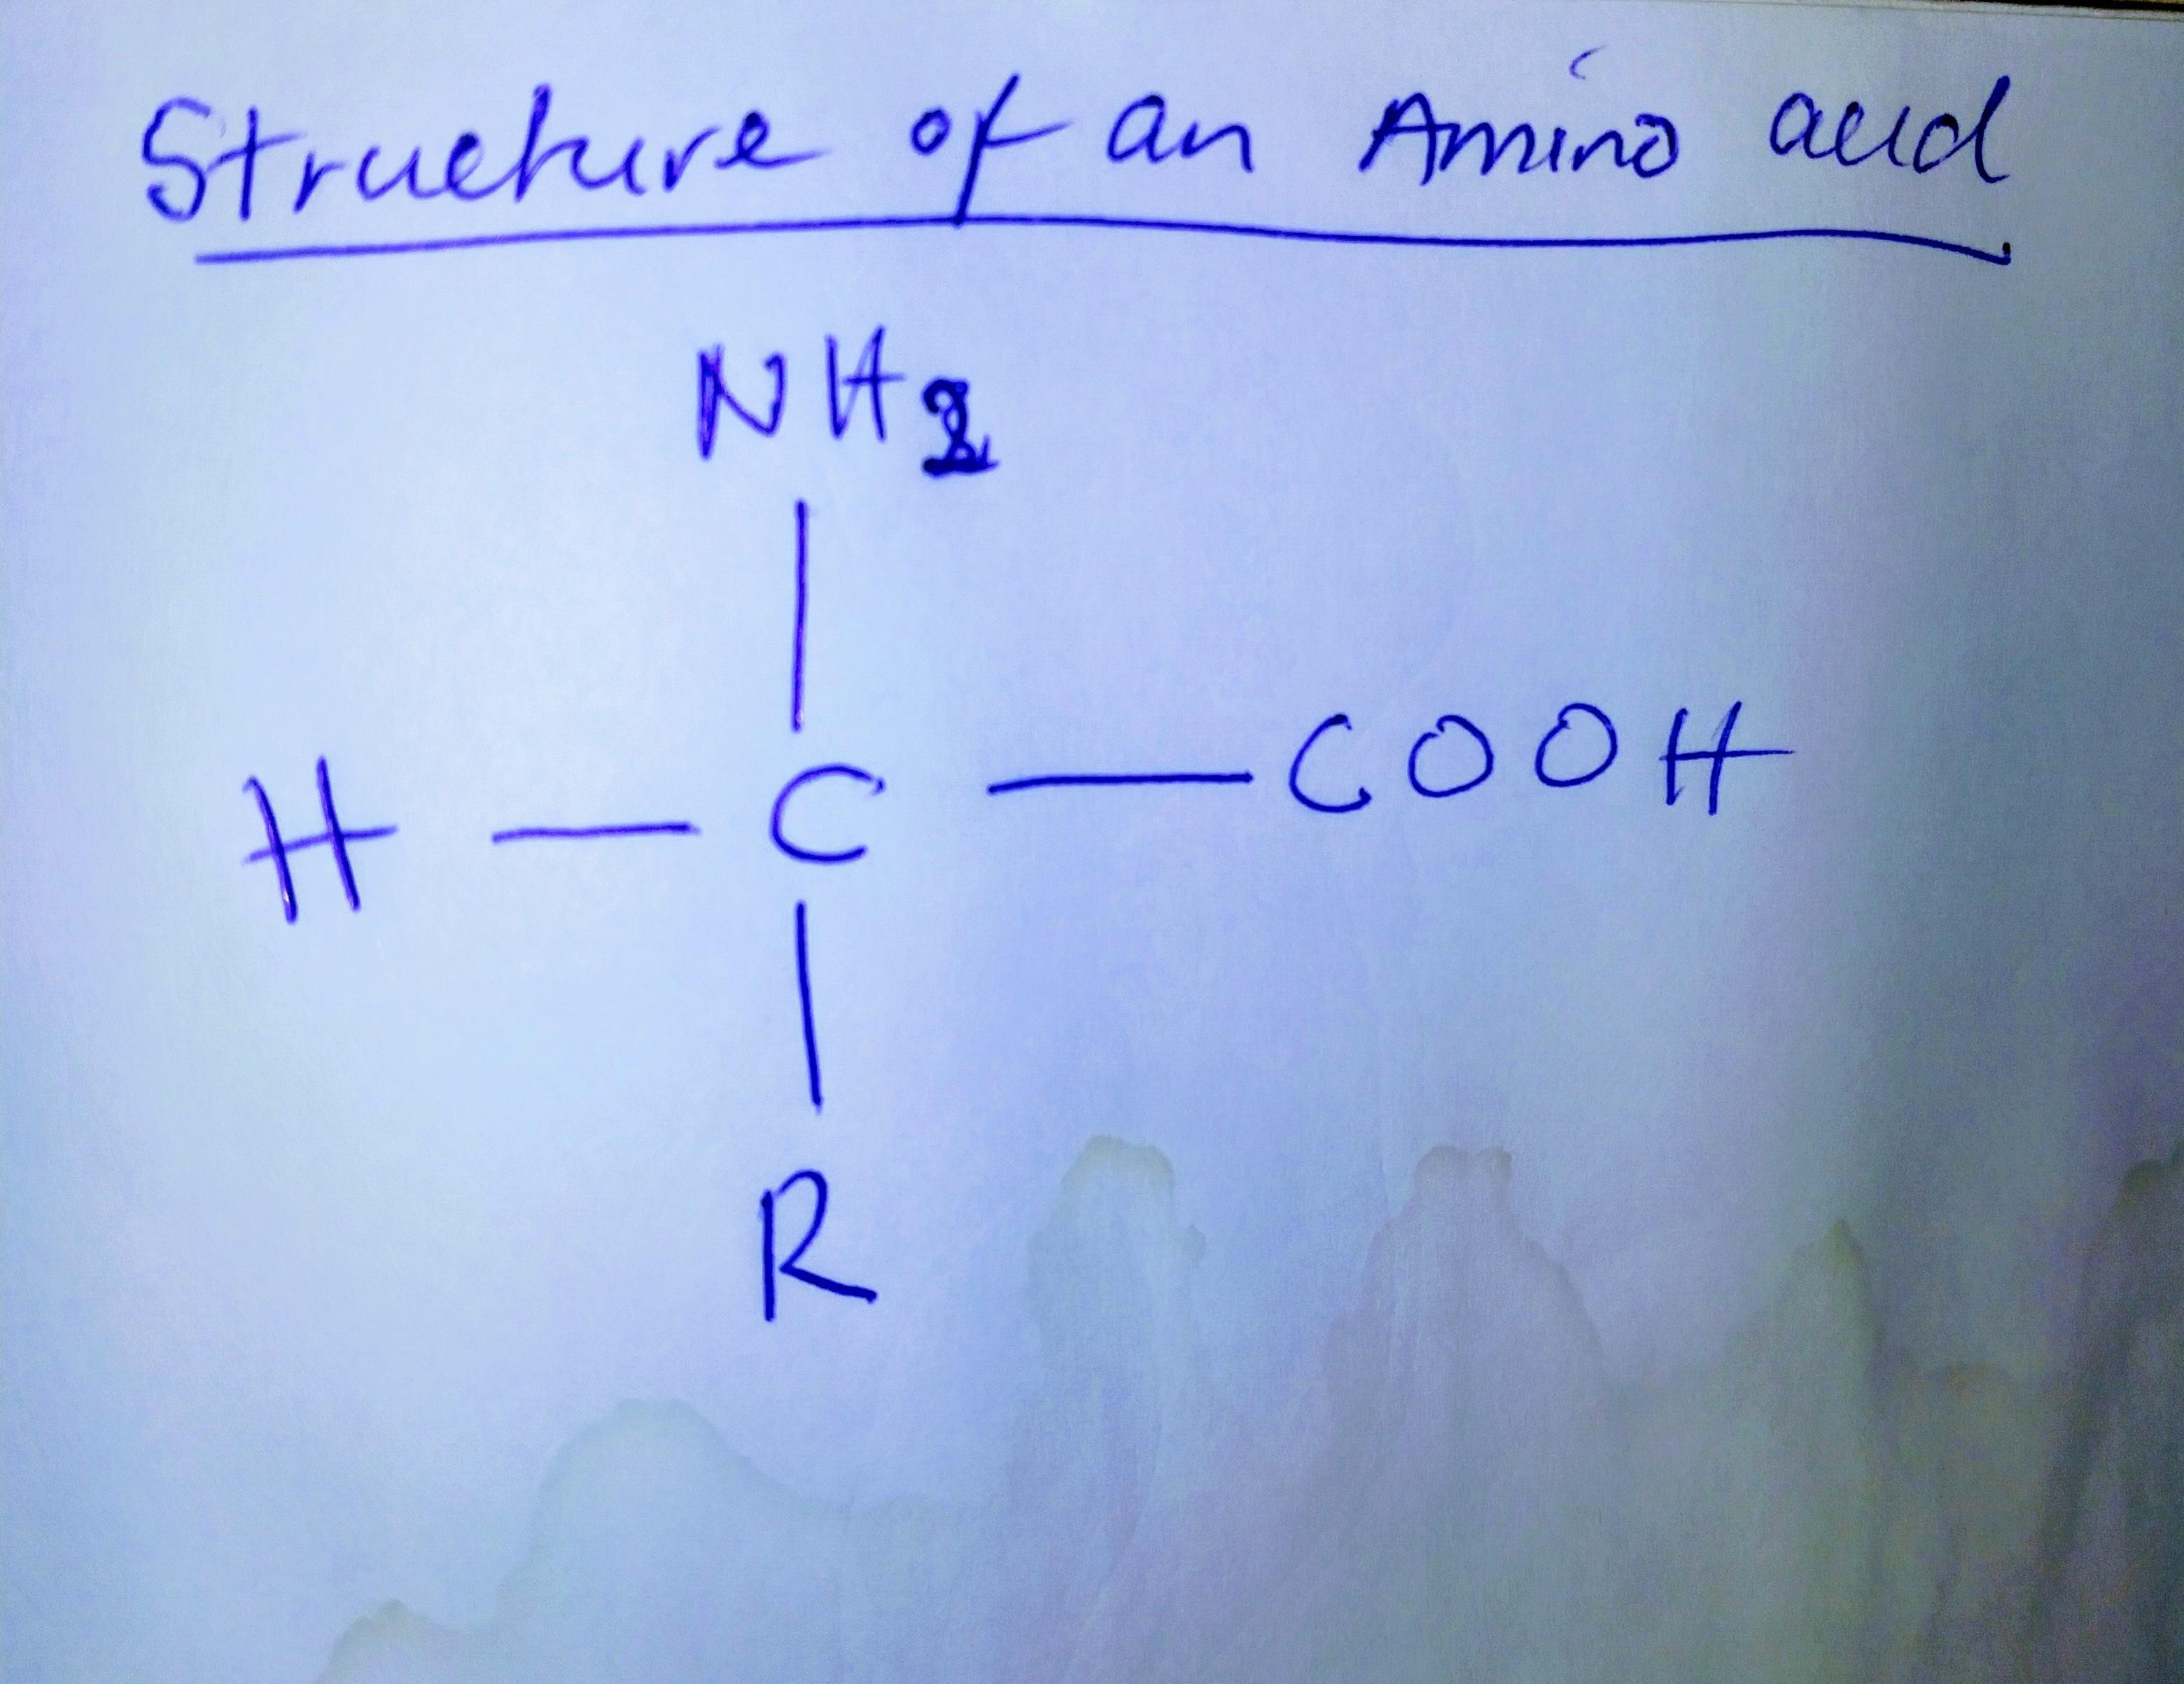 Structure of an Amino acid
NH2
H — C — COOH
R